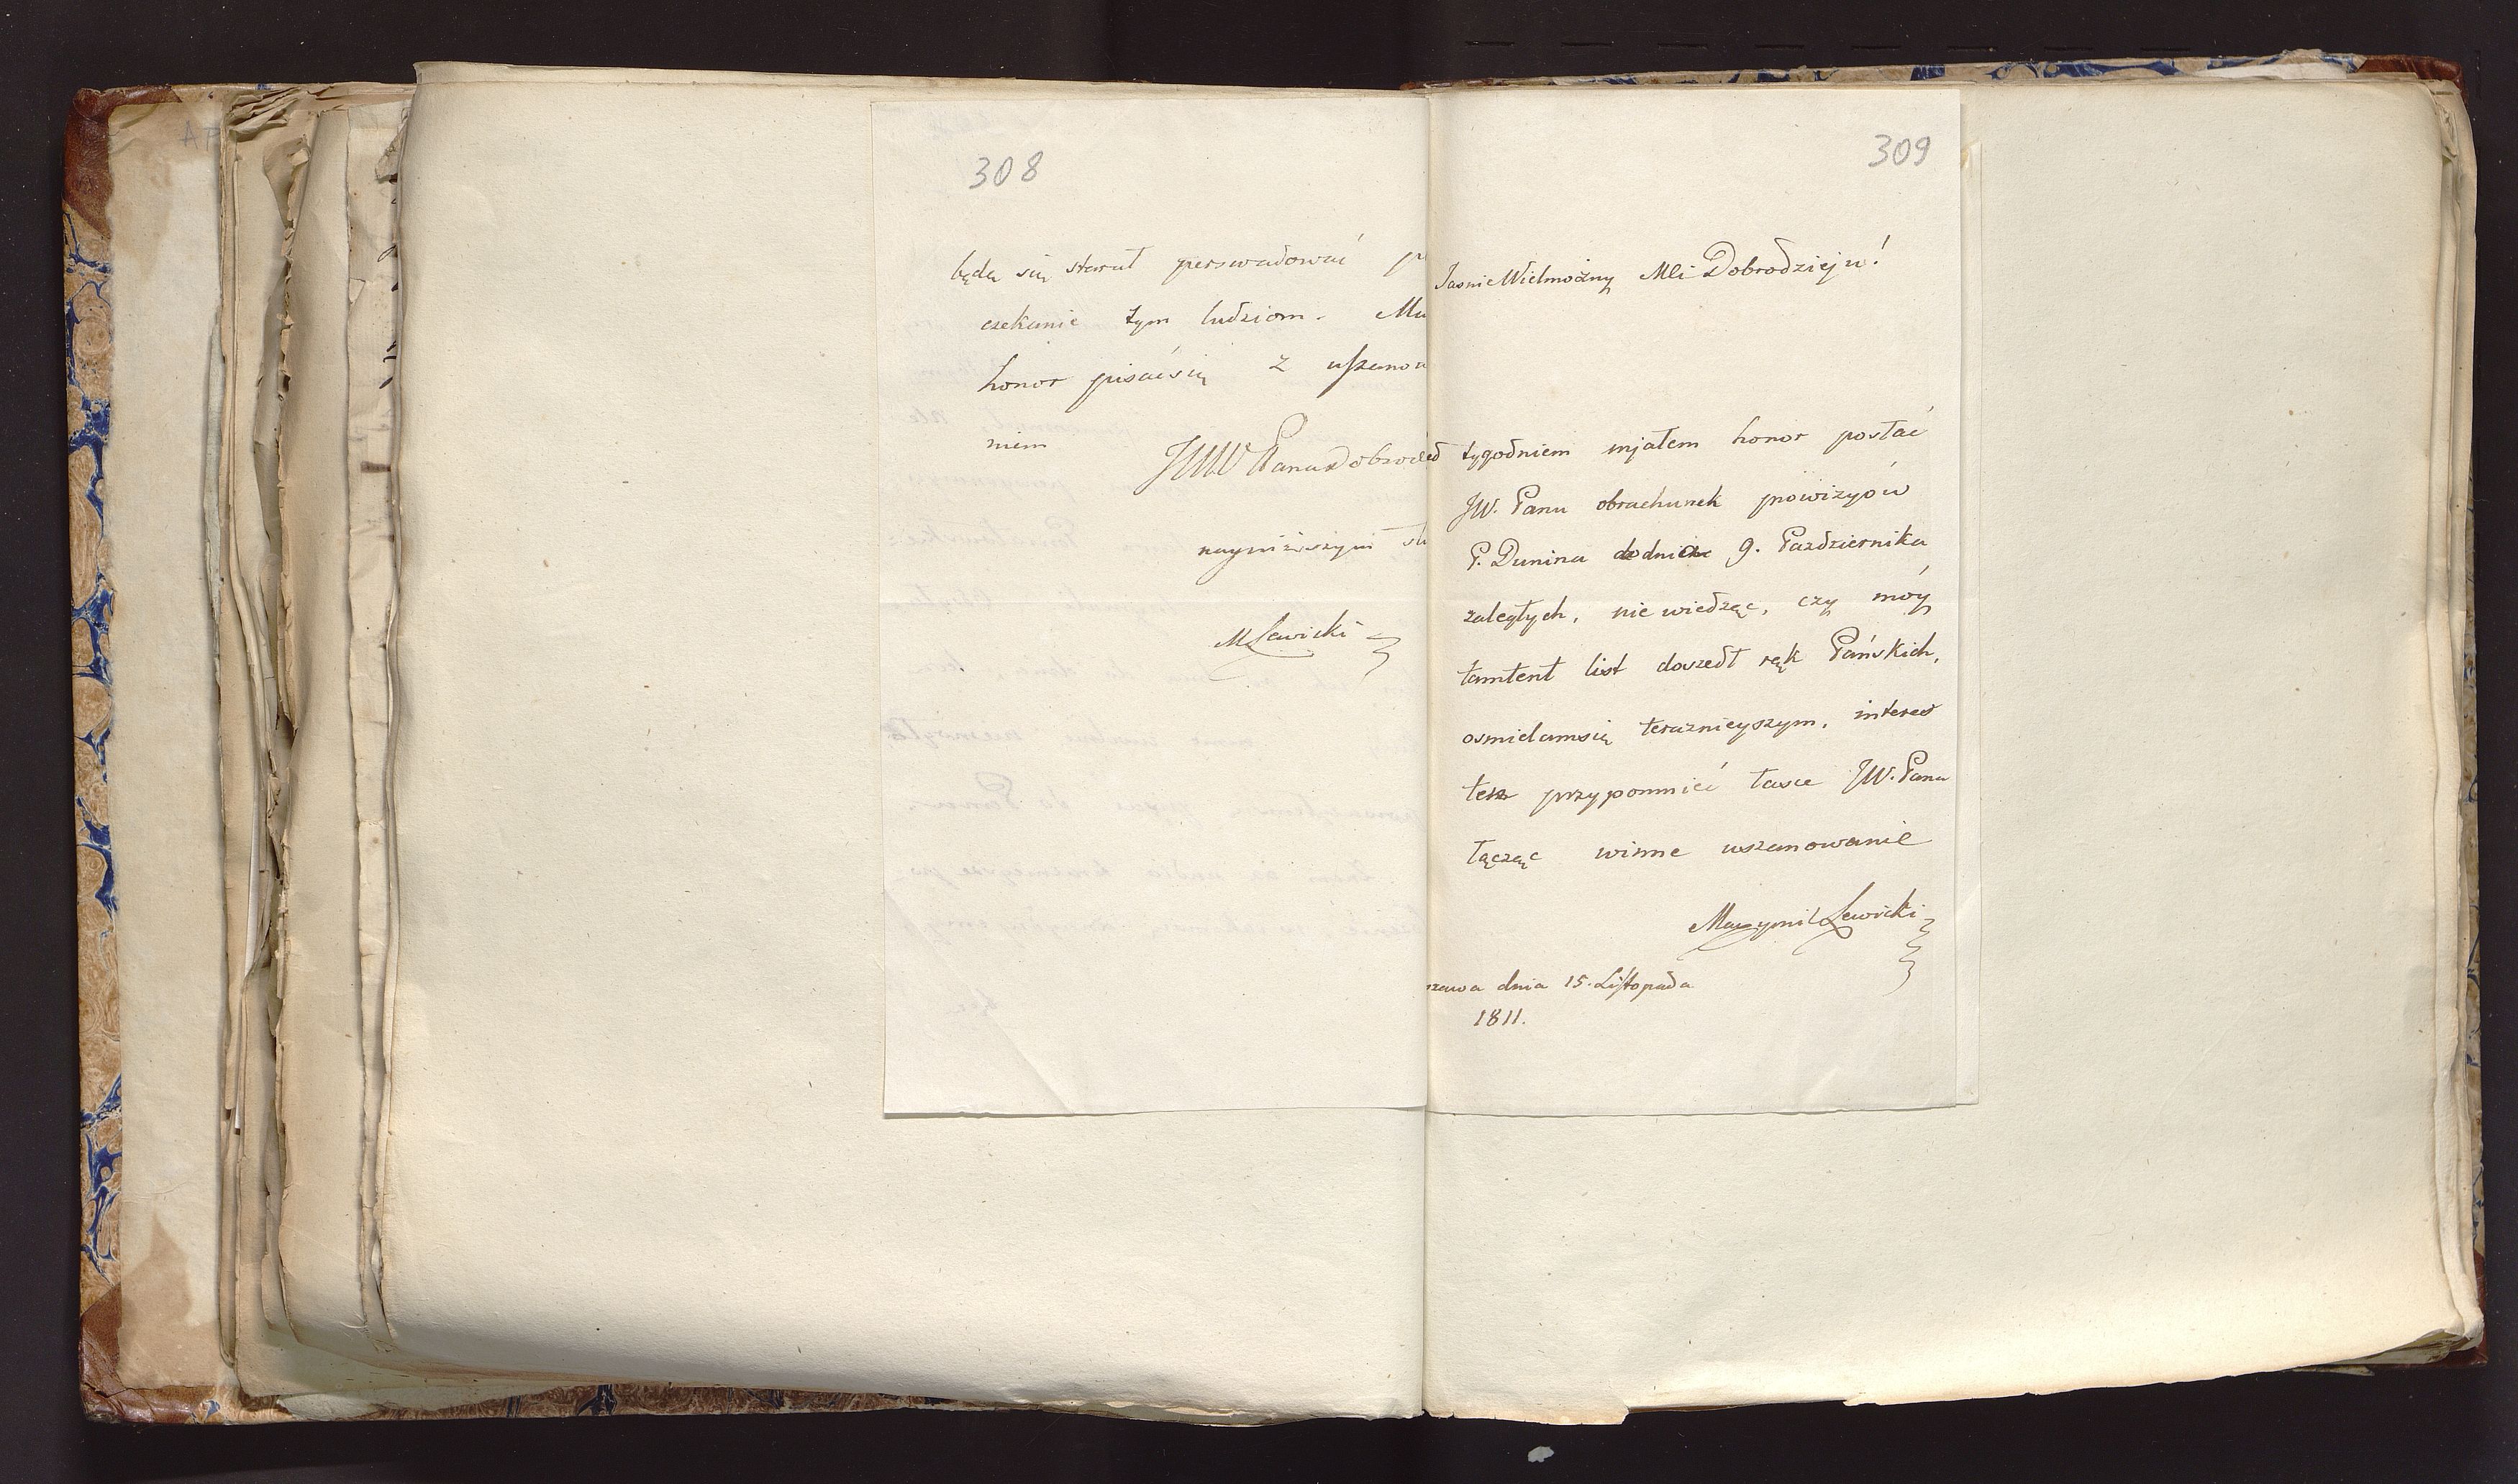 308
będę się starał perswadować
czekanie tym ludziom. Ma
honor pisać się z uszanow
niem
JWW Pana Dobrod
nayniższym słu
MLewicki
309
Jasnie Wielmożny Mci Dobrodzieju!
ed tygodniem mjałem honor posłać
JW. Panu obrachunek prowizyów
P. Dunina do dnia 9. Pazdziernika
zaległych, nie wiedząc, czy móy
tamtent list doszedł rąk Pańskich,
osmielam się teraznieyszym, interes
ten przypomnieć łasce JW. Pana
łącząc winne uszanowanie
Maxymil Lewicki
rzawa dnia 15. Listopada
1811.